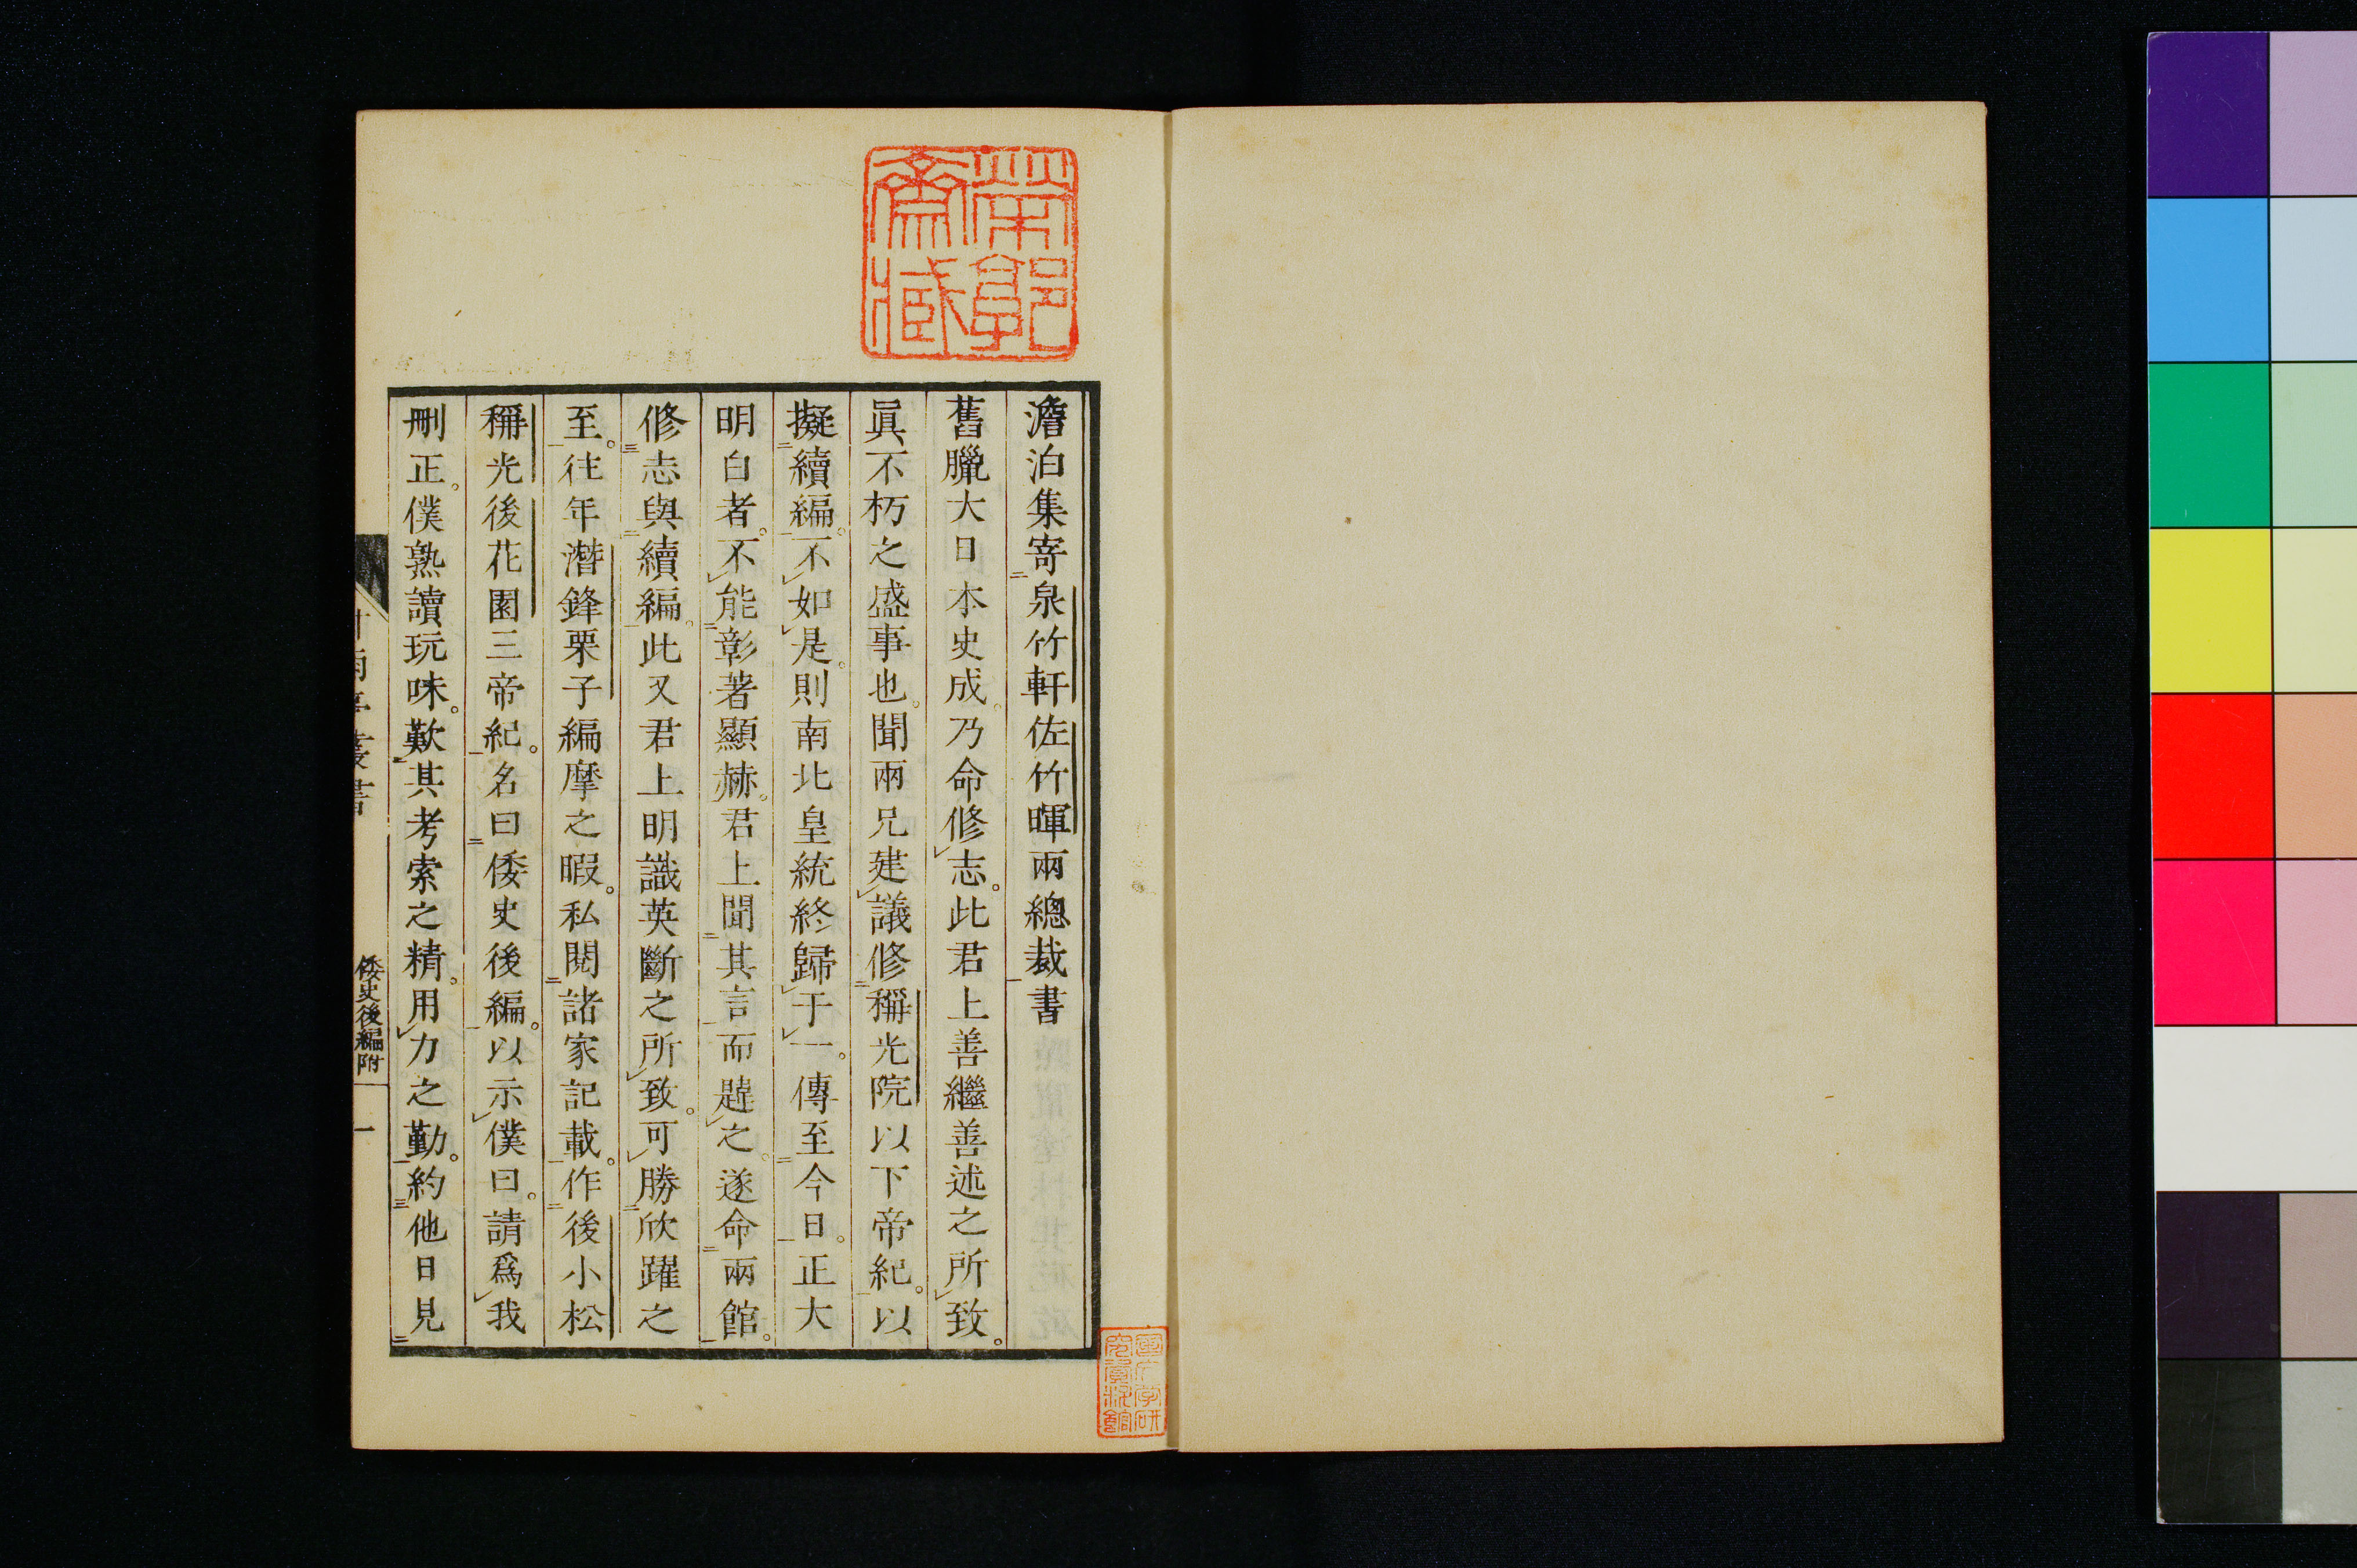 帶郭
齋藏
澹泊集寄泉竹軒佐竹暉兩總裁書
舊臘大日本史成。乃命修志。此君上善繼善述之所致。
眞不朽之盛事也。聞兩兄建議修稱光院以下帝紀。以
擬續編。不如是。則南北皇統終歸于一。傳至今日。正大
明白者。不能彰著顯赫。君上聞其言而韙之。遂命兩館。
修志與續編。此又君上明識英斷之所致。可勝欣躍之
至。往年潛鋒栗子編摩之暇。私閱諸家記載。作後小松
稱光後花園三帝紀。名曰倭史後編。以示僕曰。請爲我
刪正。僕熟讀玩味。歎其考索之精。用力之勤。約他日見
甘雨亭叢書
倭史後編附
一